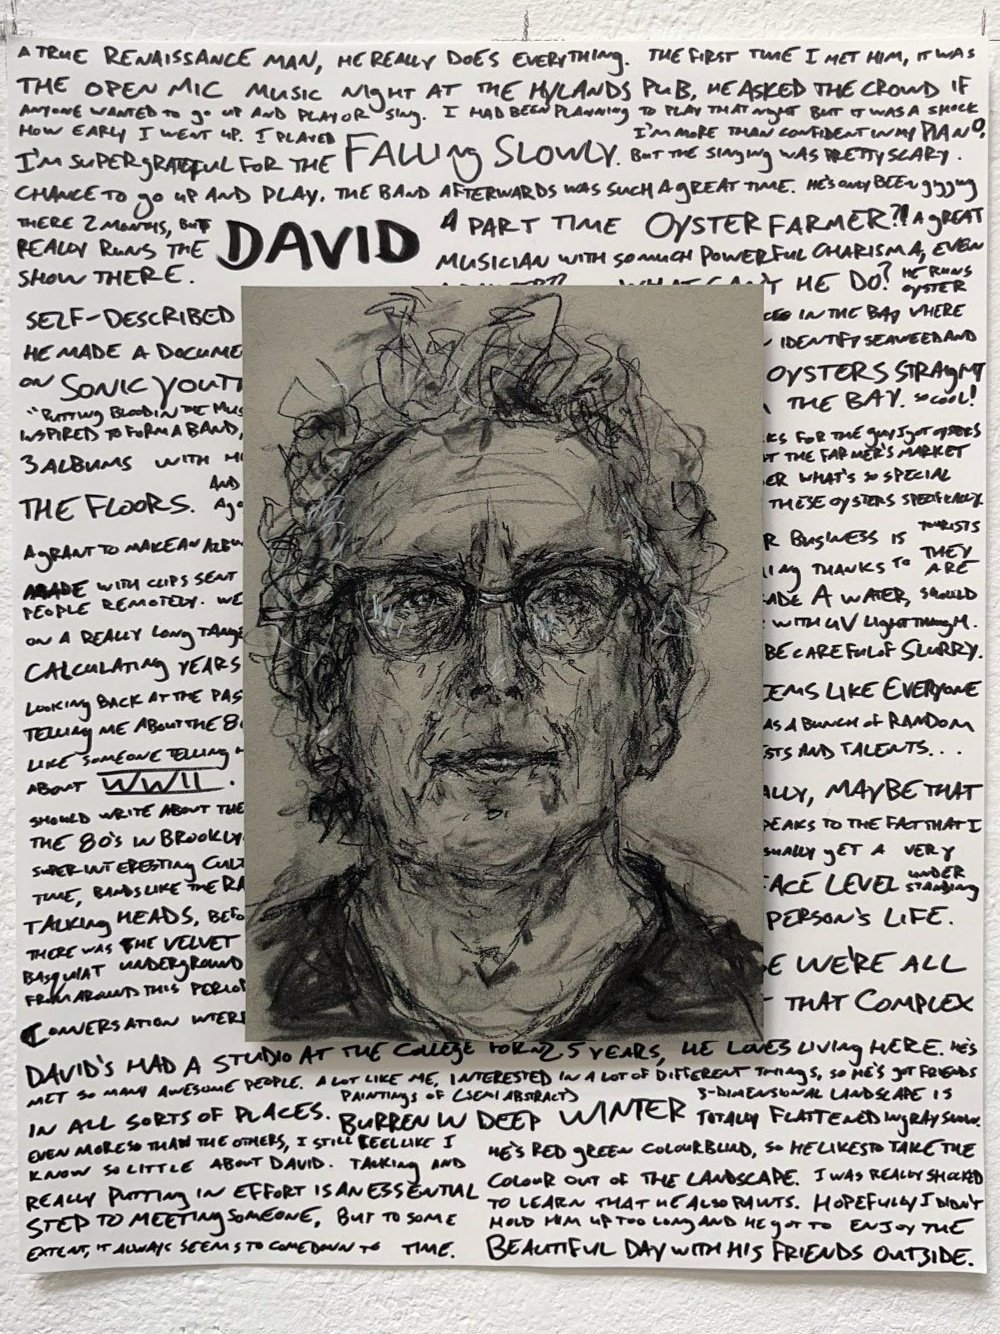 A TRUE RENAISSANCE MAN, HE REALLY DOES EVERYTHING. THE FIRST TIME I MET HIM, IT WAS
THE OPEN MIC MUSIC NIGHT AT THE HYLANDS PUB, HE ASKED THE CROWD IF
ANYONE WANTED TO GO UP AND PLAY OR SING. I HAD BEEN PLANNING TO PLAY THAT NIGHT BUT IT WAS A SHOCK
HOW EARLY I WENT UP. I PLAYED FALLING SLOWLY. I'M MORE THAN CONFIDENT IN MY PIANO,
BUT THE SINGING WAS PRETTY SCARY.
I'M SUPER GRATEFUL FOR THE
CHANCE TO GO UP AND PLAY. THE BAND AFTERWARDS WAS SUCH A GREAT TIME. HE'S ONLY BEEN GIGGING
THERE 2 MONTHS, BUT
REALLY RUNS THE
SHOW THERE.
DAVID
A PART TIME OYSTER FARMER?! A GREAT
MUSICIAN WITH SO MUCH POWERFUL CHARISMA, EVEN
WHAT CAN'T HE DO? HE RUNS
OYSTER
SELF-DESCRIBED
HE MADE A DOCUME
ON SONIC YOUT
"PUTTING BLOOD IN THE MUS
INSPIRED TO FORM A BAND,
3 ALBUMS WITH
AND
THE FLOORS. AGO
A GRANT TO MAKE AN ALBU
MADE WITH CLIPS SENT
PEOPLE REMOTELY. WE
ON A REALLY LONG TANGE
CALCULATING YEARS
LOOKING BACK AT THE PAS
TELLING ME ABOUT THE 8
LIKE SOMEONE TELLING
ABOUT WWII.
SHOULD WRITE ABOUT THE
THE 80'S IN BROOKLY
SUPER INTERESTING CUL
TIME, BANDS LIKE THE RA
TALKING HEADS, BEFO
THERE WAS THE VELVET
BASQUIAT UNDERGROUND
FROM AROUND THIS PERIO
CONVERSATION WITH
IN THE BAY WHERE
IDENTIFY SEAWEED AND
OYSTERS STRAIGHT
THE BAY. SO COOL!
KS FOR THE GUY I GOT OYSTERS
T THE FARMER'S MARKET
ER WHAT'S SO SPECIAL
THESE OYSTERS SPECIFICALLY.
R BUSINESS IS TOURISTS
ING THANKS TO THEY
ARE
ADE A WATER, SHOULD
WITH UV LIGHT THOUGH.
BE CAREFUL OF SLURRY.
EMS LIKE EVERYONE
AS A BUNCH OF RANDOM
STS AND TALENTS...
ALLY, MAYBE THAT
PEAKS TO THE FACT THAT I
SUALLY GET A VERY
FACE LEVEL UNDER
STANDING
PERSON'S LIFE.
E WE'RE ALL
THAT COMPLEX
DAVID'S HAD A STUDIO AT THE COLLEGE FOR 25 YEARS, HE LOVES LIVING HERE. HE'S
MET SO MANY AWESOME PEOPLE. A LOT LIKE ME, INTERESTED IN A LOT OF DIFFERENT THINGS, SO HE'S GOT FRIENDS
IN ALL SORTS OF PLACES.
PAINTINGS OF (SEMI ABSTRACT) 3-DIMENSIONAL LANDSCAPE IS
BURREN IN DEEP WINTER TOTALLY FLATTENED IN GRAY SNOW.
EVEN MORE SO THAN THE OTHERS, I STILL FEEL LIKE I
KNOW SO LITTLE ABOUT DAVID. TALKING AND
REALLY PUTTING IN EFFORT IS AN ESSENTIAL
STEP TO MEETING SOMEONE, BUT TO SOME
EXTENT, IT ALWAYS SEEMS TO COME DOWN TO TIME.
HE'S RED GREEN COLOURBLIND, SO HE LIKES TO TAKE THE
COLOUR OUT OF THE LANDSCAPE. I WAS REALLY SHOCKED
TO LEARN THAT HE ALSO PAINTS. HOPEFULLY I DIDN'T
HOLD HIM UP TOO LONG AND HE GOT TO ENJOY THE
BEAUTIFUL DAY WITH HIS FRIENDS OUTSIDE.